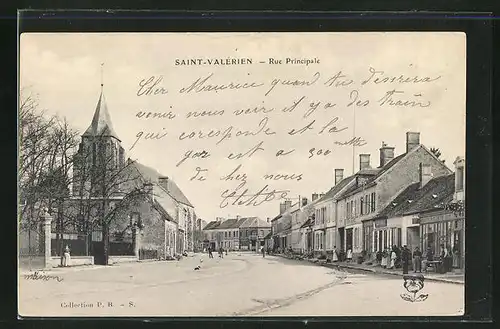 SAINT-VALÉRIEN — Rue Principale
Cher Maurice quand tu desirera
venir nous voir et ya des train
qui coresponde et la
gar est a 300 mtre
de cher nous
Clothe
maison
Collection P. R. — S.